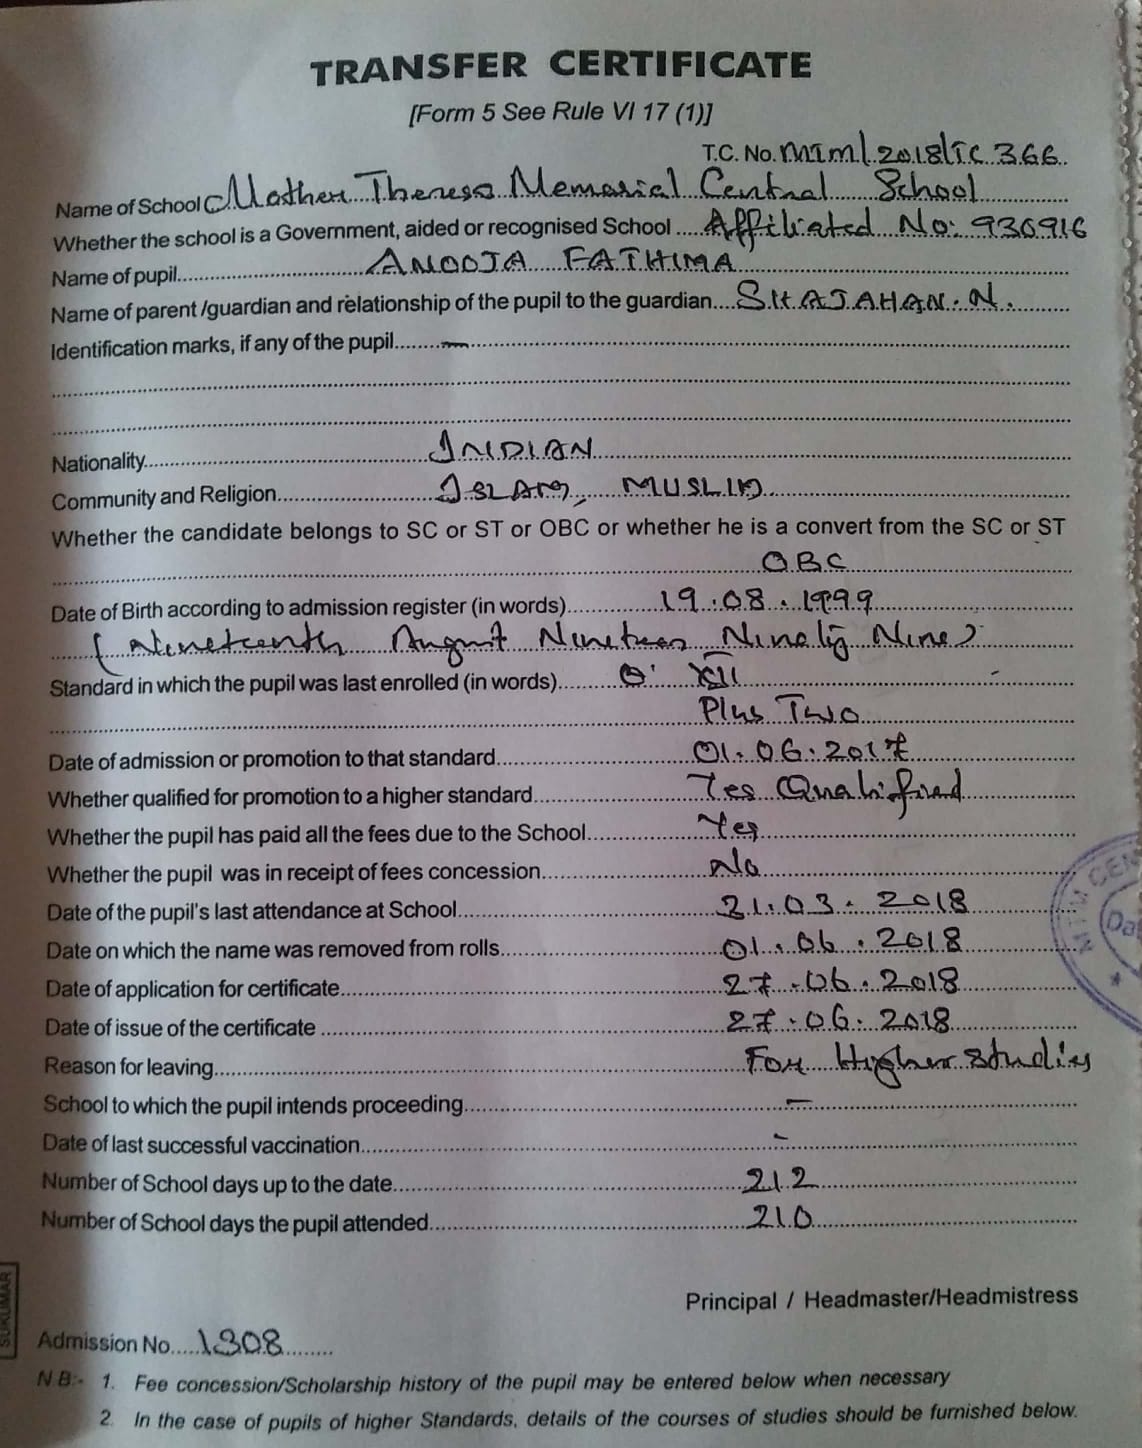 TRANSFER CERTIFICATE
[Form 5 See Rule VI 17 (1)]
T.C. No. MTM/2018/TC 366
Name of School Mother Theresa Memorial Central School
Whether the school is a Government, aided or recognised School Affiliated No: 930916
Name of pupil ANOOJA FATHIMA
Name of parent /guardian and relationship of the pupil to the guardian SHAJAHAN. N.
Identification marks, if any of the pupil —
Nationality INDIAN
Community and Religion ISLAM, MUSLIM
Whether the candidate belongs to SC or ST or OBC or whether he is a convert from the SC or ST
OBC
Date of Birth according to admission register (in words) 19.08.1999
(Nineteenth August Nineteen Ninety Nine)
Standard in which the pupil was last enrolled (in words) XII
Plus Two
Date of admission or promotion to that standard 01.06.2017
Whether qualified for promotion to a higher standard Yes Qualified
Whether the pupil has paid all the fees due to the School Yes
Whether the pupil was in receipt of fees concession No
Date of the pupil's last attendance at School 31.03.2018
Date on which the name was removed from rolls 01.06.2018
Date of application for certificate 27.06.2018
Date of issue of the certificate 27.06.2018
Reason for leaving For Higher studies
School to which the pupil intends proceeding —
Date of last successful vaccination -
Number of School days up to the date 212
Number of School days the pupil attended 210
MTM CEN
Da
Principal / Headmaster/Headmistress
SUKUMAR
Admission No 1308
N.B:- 1. Fee concession/Scholarship history of the pupil may be entered below when necessary
2. In the case of pupils of higher Standards, details of the courses of studies should be furnished below.